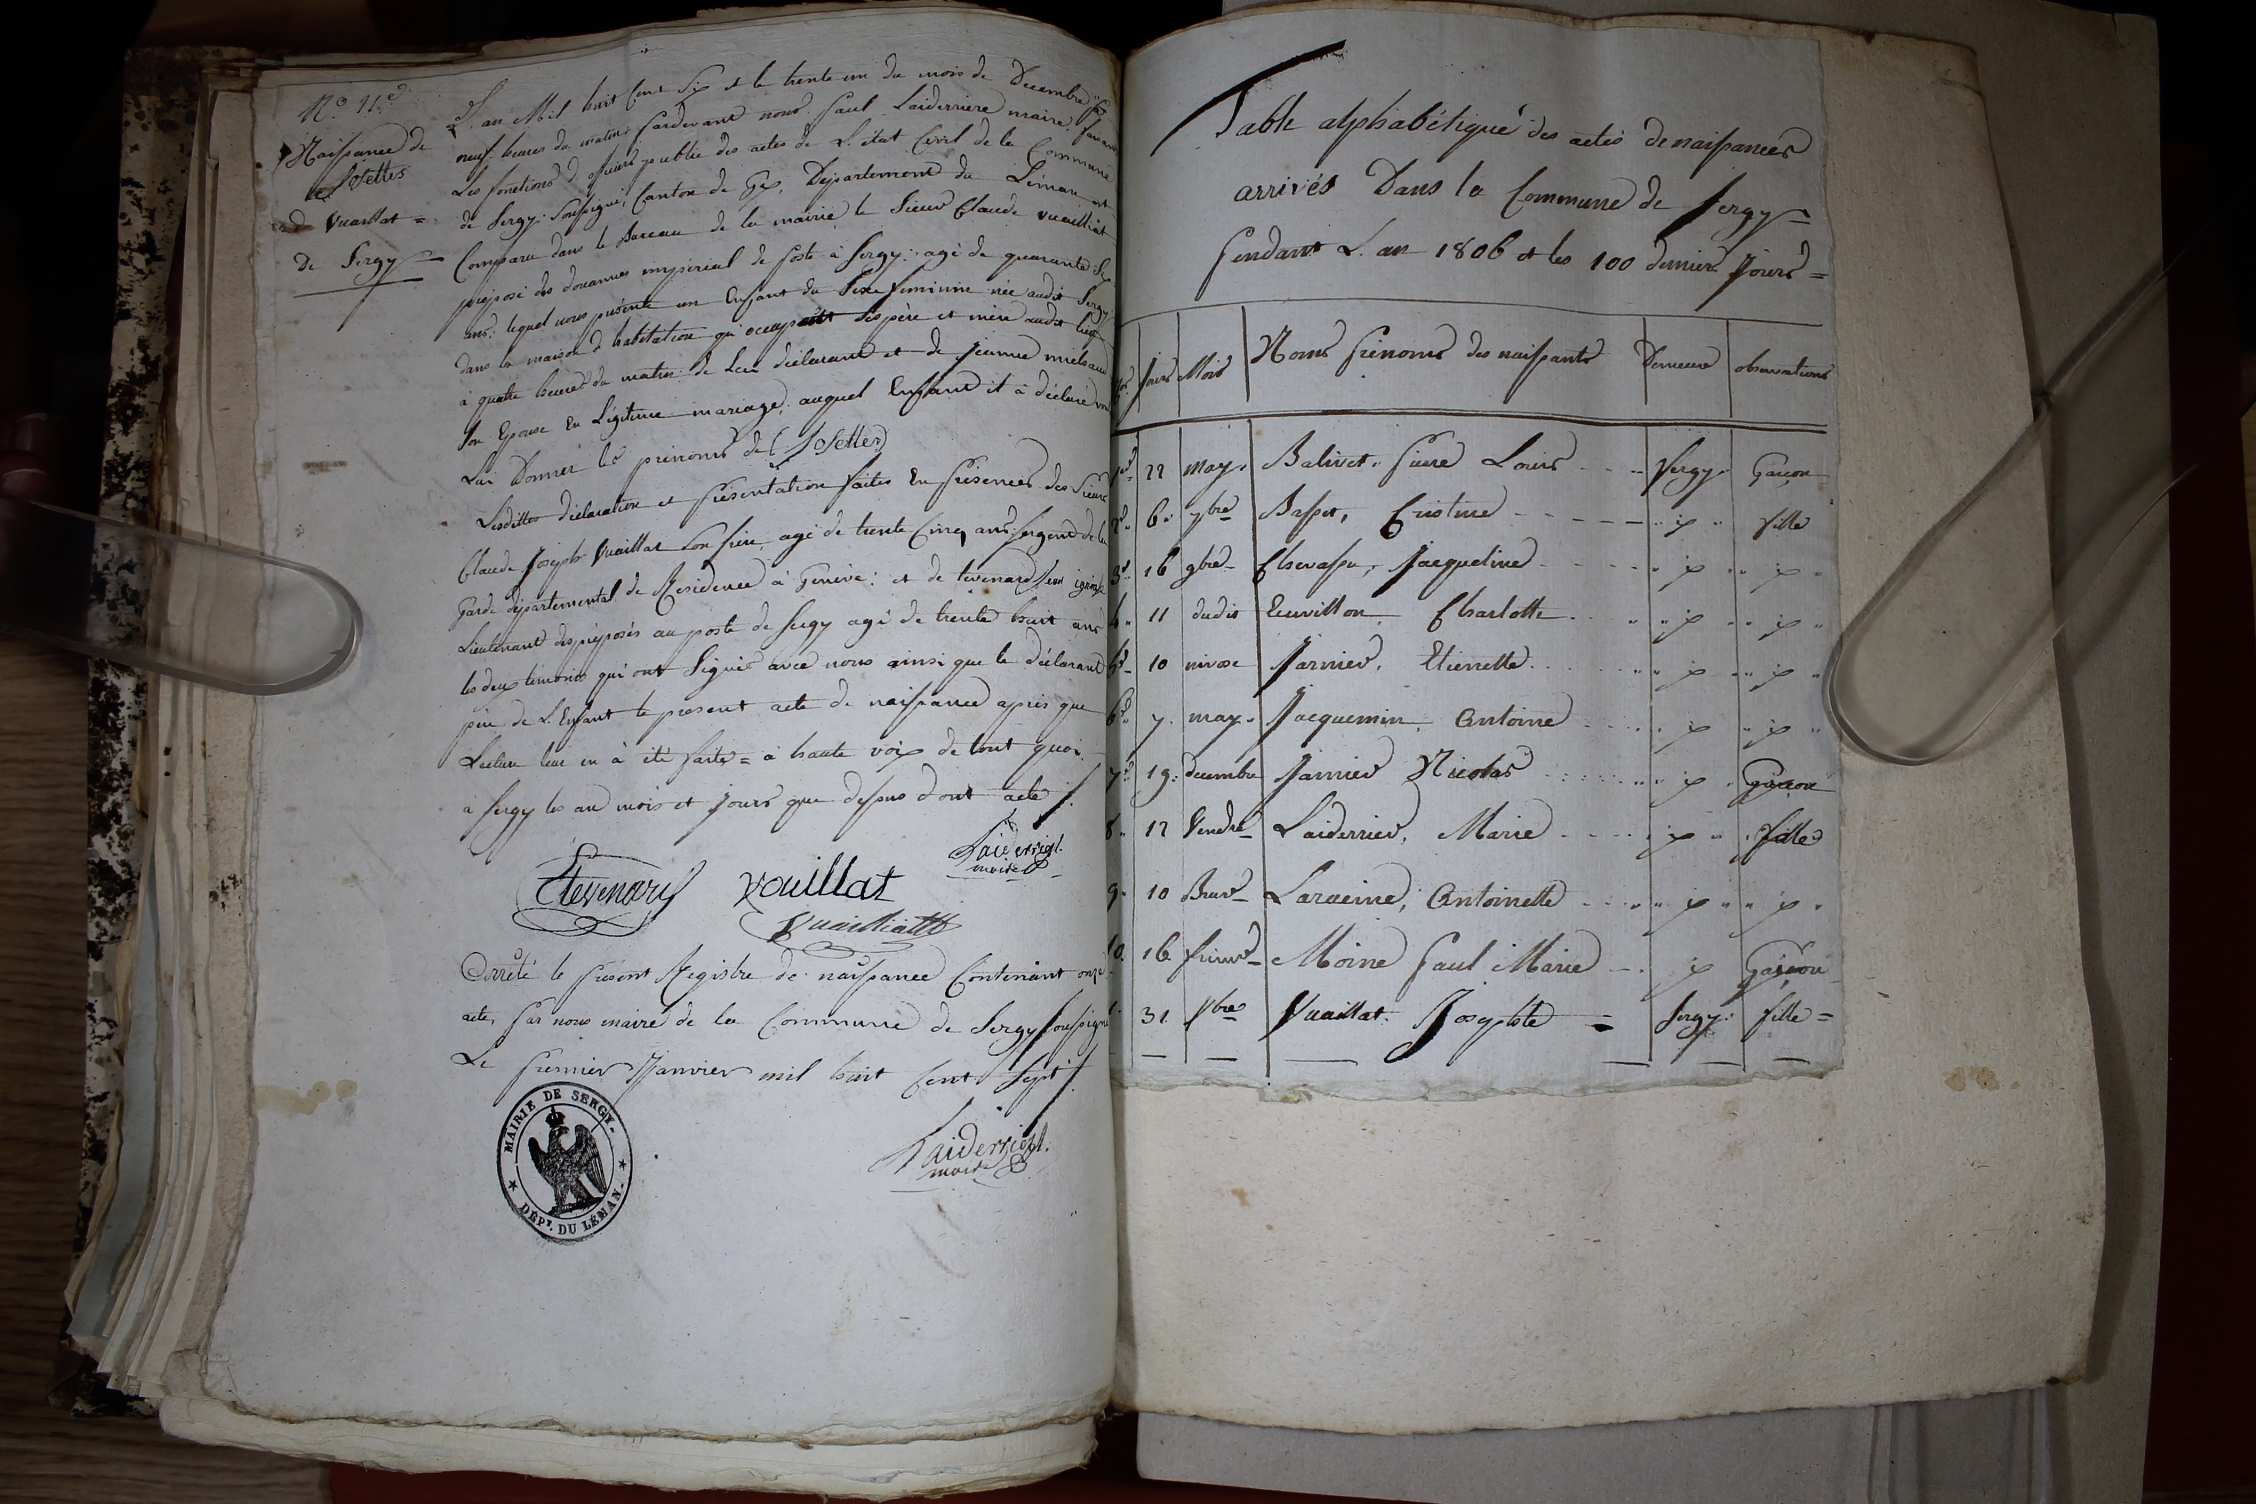 N.º 11.e
Naissance de
Josettes
Vuaillat =
De Sergy
L'an Mil huit Cent Six et le trente un du mois de Decembre
neuf heures du matin pardevant nous Paul Laiderriere maire faisant
Les fonctions d'officier public des actes de L'état Civil de la Commune
de Sergy soussigné, Canton de Gex, Département du Léman est
Comparu dans le Bureau de la mairie le Sieur Claude vuailliat
préposé des douannes impérial de poste à Sergy: agé de quarante Six
ans: lequel nous présente un Enfant du Sexe feminin née audit Sergy
dans la maison d'habitation qu'occupait Ses père et mère audit lieu
à quatre heures du matin de Lui déclarant et de jeanne
Son Epouse En Légitime mariage, auquel Enfant il à déclaré
Lui Donner Le prénoms de (Josettes)
Lesdittes déclaration et présentation faites En présences des Sieurs
Claude Joseph Vuaillat Son frère, agé de trente Cinq ans Sergent de la
Garde départemental de Résidence à Genève: et de tevenard
Lieutenant des préposés au poste de Sergy agé de trente huit ans
les deux temoins qui ont Signés avec nous ainsi que le déclarant
père de L'Enfant le présent acte de naissance après que
Lecture leur en à été faite = à haute voix de tout quoi
à Sergy les an mois et jours que dessus dont acte
Laiderriere
maire
tevenard vouillat
vuailliatt
Arrêté le présent Registre de naissance Contenant onze
acte, par nous maire de la Commune de Sergy soussigné
Le premier Janvier mil huit Cent Sept
Laiderriere
maire
MAIRIE DE SERGY.
DÉPT. DU LÉMAN.
Table alphabétique des actes de naissances
arrivés Dans la Commune de Sergy
pendant L'an 1806 et les 100 dernier Jours =
Jours Mois Noms Prénoms des naissants Demeure observations
1er 22 may. Balivet, Pierre Louis Sergy Garçon
2d 6 7bre Basset, Cristine - fille
3e 16 9bre Chevassu, Jacqueline
4 11 dudit Ecuvillon, Charlotte
5e 10 nivose Jarnier, Etienette
6e 7 may Jacquemin, Antoine
7e 19 decembre Jarnier Nicolas Garçon
8 12 Vendre Laiderrier, Marie fille
9 10 Brure Laraeine, Antoinette
10 16 frimre Moine Paul Marie Garçon
31 Xbre Vuaillat Josephte = Sergy fille =